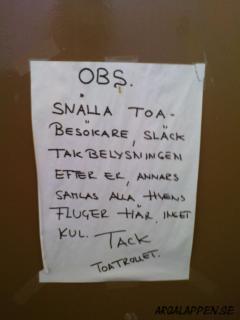 OBS.
SNÄLLA TOA-
BESÖKARE, SLÄCK
TAKBELYSNINGEN
EFTER ER, ANNARS
SAMLAS ALLA HVENS
FLUGER HÄR. INGET
KUL. TACK
TOATROLLET.
ARGALAPPEN.SE